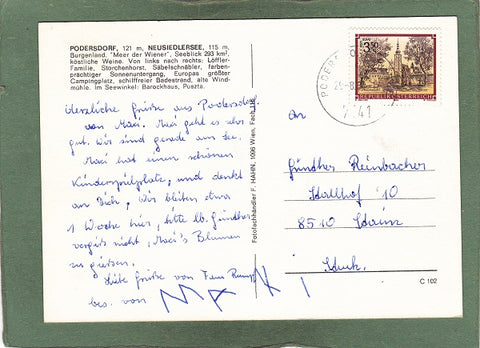 PODERSDORF, 121 m, NEUSIEDLERSEE, 115 m,
Burgenland. "Meer der Wiener", Seeblick 293 km²,
köstliche Weine. Von links nach rechts: Löffler-
Familie, Storchenhorst, Säbelschnäbler, farben-
prächtiger Sonnenuntergang, Europas größter
Campingplatz, schilffreier Badestrand, alte Wind-
mühle. Im Seewinkel: Barockhaus, Puszta.
Herzliche Grüße aus Podersdorf
von Maxi. Maxi geht es sehr
gut. Wir sind gerade am See.
Maxi hat einen schönen
Kinderspielplatz, und denkt
an Dich, Wir bleiben etwa
1 Woche hier, bitte lb. Günther
vergiß nicht, Maxi's Blumen
zu gießen.
Liebe Grüße von Fam
bes. von MAXI
Fotofachhändler F. HAHN, 1096 Wien, Fach
3.50
REPUBLIK ÖSTERREICH
7141
an
Günther Reinbacher
10
8510 Stainz
Stmk.
C 102